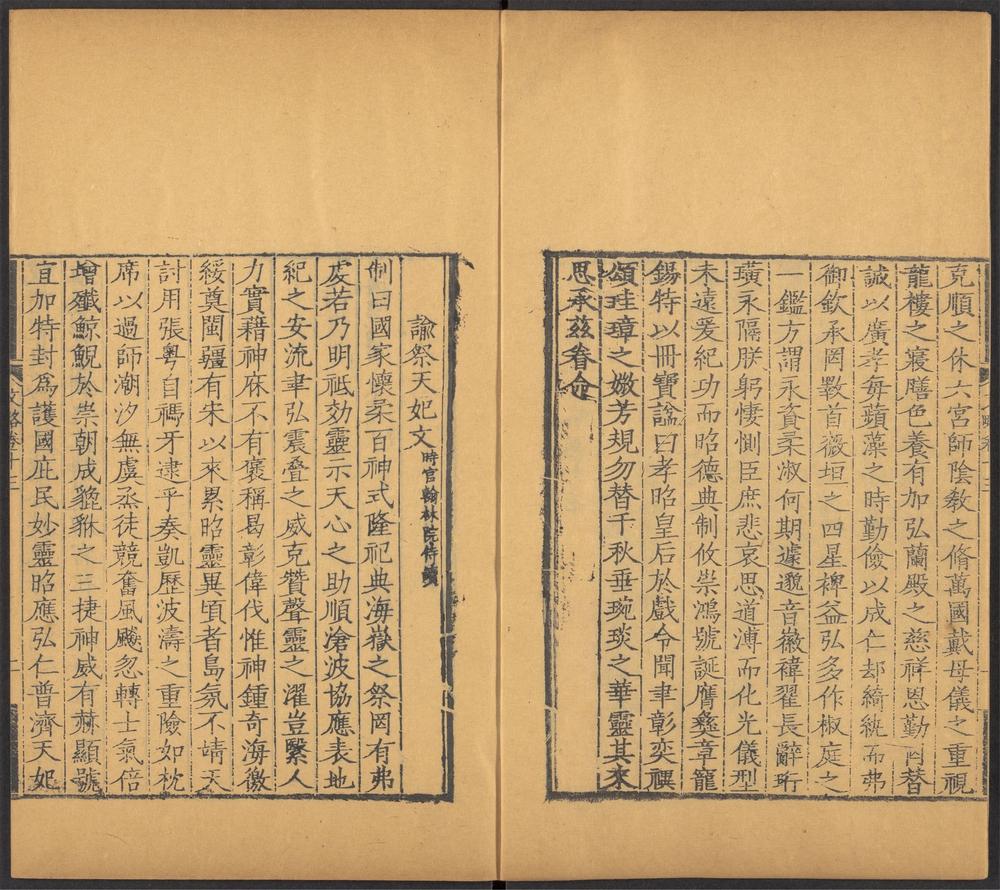 克順之休六宮師陰教之脩萬國戴母儀之重視
龍樓之寢膳色養有加弘蘭殿之慈祥恩勤罔替
誠以廣孝每蘋藻之時勤儉以成仁却綺紈而弗
御欽承罔斁首薇垣之四星裨益弘多作椒庭之
一鑑方謂永資柔淑何期遽邈音徽褘翟長辭珩
璜永隔朕躬悽惻臣庶悲哀思道溥而化光儀型
未遠爰紀功而昭德典制攸崇鴻號誕膺彝章寵
錫特以冊寶諡曰孝昭皇后於戲令聞聿彰奕禩
頌珪璋之媺芳規勿替千秋垂琬琰之華靈其來
思承茲眷命
諭祭天妃文時官翰林院侍讀
制曰國家懷柔百神式隆祀典海嶽之祭罔有弗
虔若乃明祗効靈示天心之助順滄波協應表地
紀之安流聿弘震疊之威克贊聲靈之濯豈繄人
力實藉神庥不有褒稱曷彰偉伐惟神鍾奇海徼
綏奠閩疆有宋以來累昭靈異頃者島氛不靖天
討用張粵自禡牙逮乎奏凱歷波濤之重險如枕
席以過師潮汐無虞烝徒競奮風飈忽轉士氣倍
增殲鯨鯢於崇朝成貔貅之三捷神威有赫顯號
宜加特封爲護國庇民妙靈昭應弘仁普濟天妃
文略卷十三